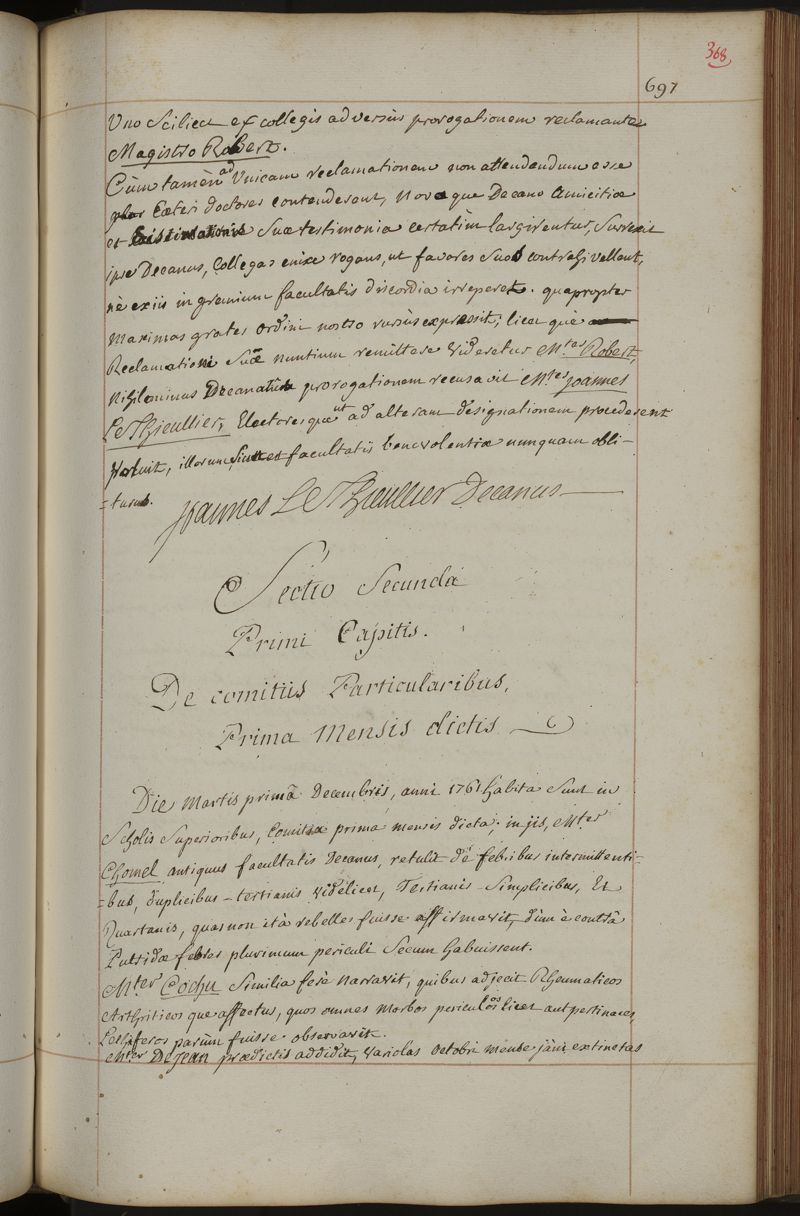 368
697
Uno Scilicet ex collegis adversùs prorogationem reclamante
Magistro Robert.
Cùm tamèn ad Unicam reclamationem non attendendum esse
Cæteri doctores contenderent, Novaque Decano Amicitiæ
et Existimationis Suæ testimonia certatìm largirentur, Surrexit
ipse Decanus, Collegas enixe rogans, ut favores Suos contrahi vellent,
nè exiis in gremium facultatis discordia irreperet. quapropter
Maximas grates Ordini nostro rursùs expressit; licet què
Reclamationi Suæ nuntium remittere Videretur Mter Robert,
Nihilominus Decanatûs prorogationem recusavit Mter Joannes
Le Thieullier, Electoresque ut ad alteram designationem procederent
voluit, illorum Sicut et facultatis benevolentiæ nunquam obli-
=turus.
Joannes Le Thieullier Decanus
Sectio Secunda
Primi Capitis.
De comitiis Particularibus,
Prima Mensis dictis
Die Martis primâ Decembris, anni 1761 habita Sunt in
Scholis Superioribus, Comitia prima mensis dicta; in jis, Mter
Chomel antiquus facultatis Decanus, retulit dè febribus intermittenti-
=bus, duplicibus-tertianis Videlicet, Tertianis-Simplicibus, Et
Quartanis, quas non ità rebelles fuisse affirmavit, dùm è contrà
Putridæ febres plurimum periculi Secum habuissent.
Mter Cochu Similia ferè narravit, quibus adjecit Rheumaticos
Arthriticosque affectus, quos omnes Morbos periculosos licet aut pertinaces,
Lethiferos parùm fuisse observavit.
Mter DeJean prædictis addidit, Variolas Octobri mense jàm extinctas